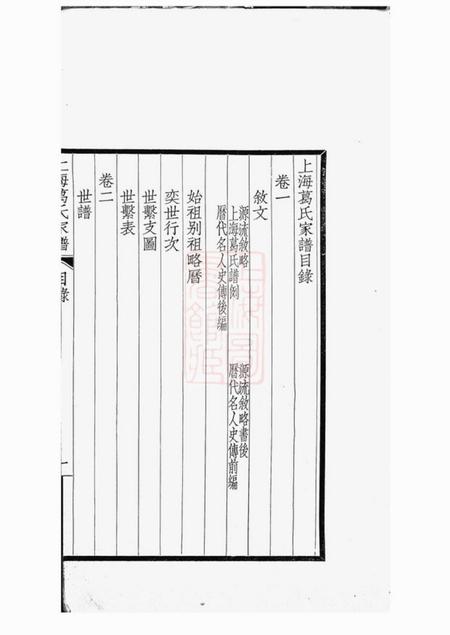 上海葛氏家譜目錄
卷一
敘文
源流敘略
源流敘略書後
上海葛氏譜例
曆代名人史傳前編
曆代名人史傳後編
始祖别祖略曆
奕世行次
世繫支圖
世繫表
卷二
世譜
上海葛氏家譜
目錄
一